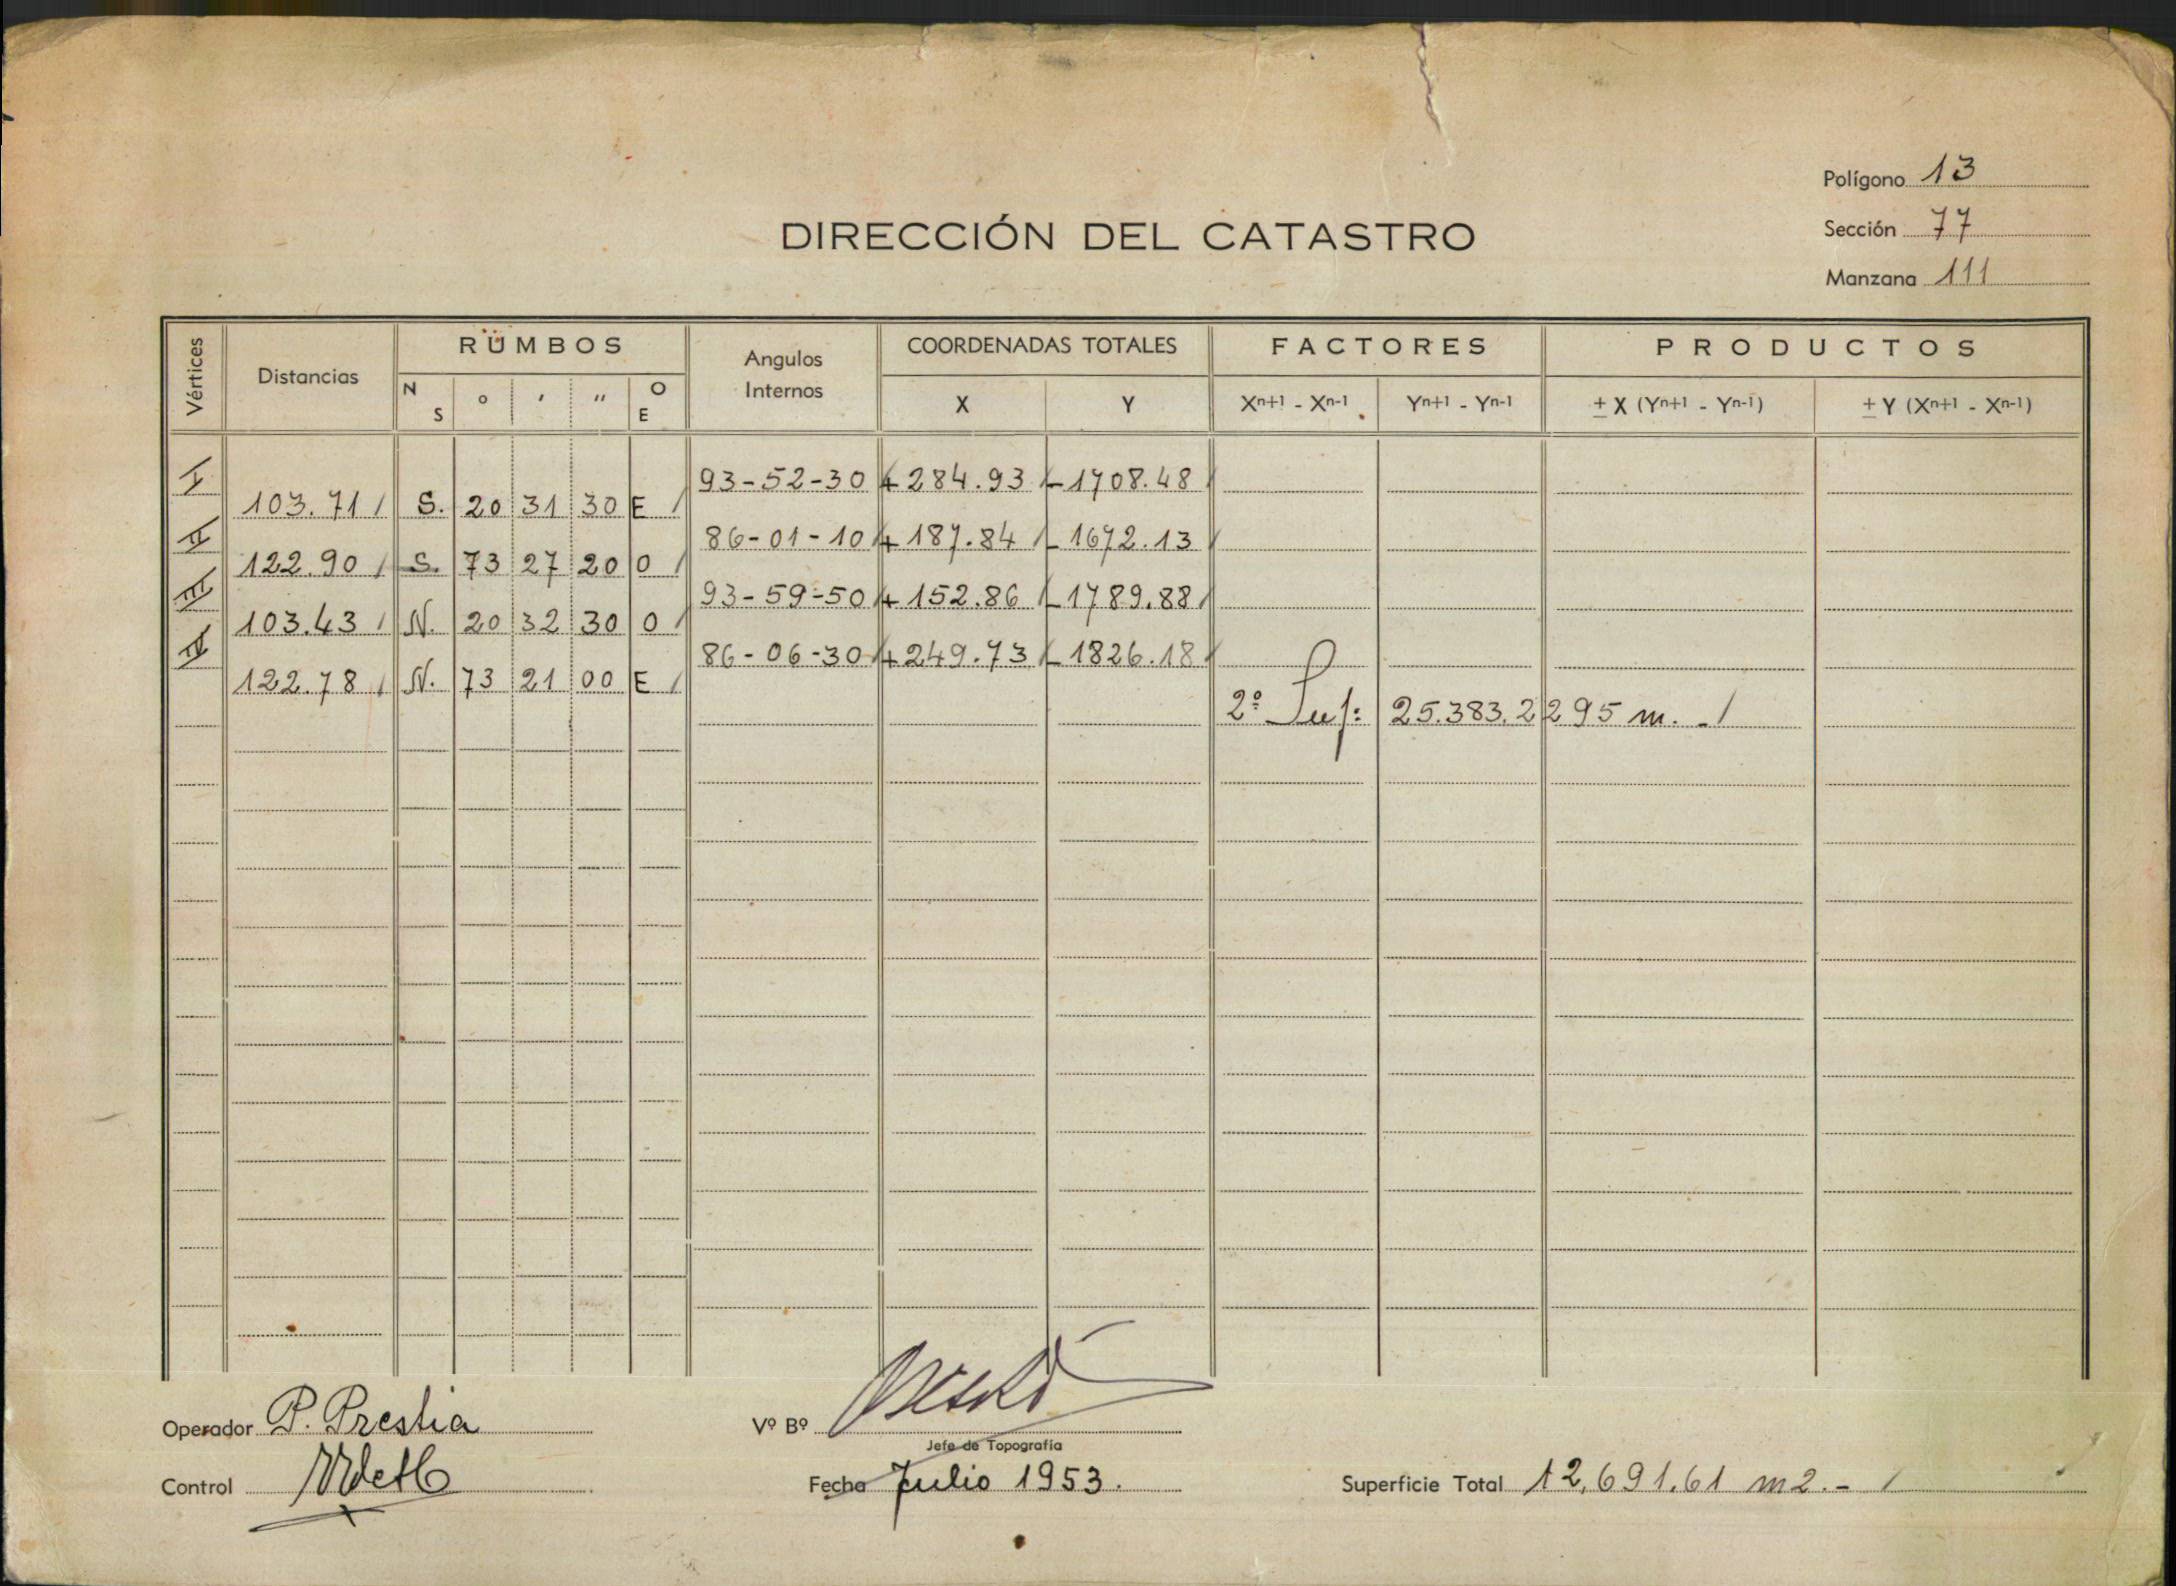 Polígono 13
DIRECCIÓN DEL CATASTRO
Sección 77
Manzana 111
Vértices Distancias RUMBOS Angulos Internos COORDENADAS TOTALES FACTORES PRODUCTOS
N S ° ′ ″ O E X Y Xn+1 - Xn-1 Yn+1 - Yn-1 ± X (Yn+1 - Yn-1) ± Y (Xn+1 - Xn-1)
I 93-52-30 + 284.93 - 1708.48
103.71 S. 20 31 30 E
II 86-01-10 + 187.84 - 1672.13
122.90 S. 73 27 20 O
III 93-59-50 + 152.86 - 1789.88
103.43 N. 20 32 30 O
IV 86-06-30 + 249.73 - 1826.18
122.78 N. 73 21 00 E
2º Sup: 25.383.2295 m. -
Operador P. Prestia
Vº Bº
Jefe de Topografía
Control
Fecha Julio 1953.
Superficie Total 12,691.61 m2.-